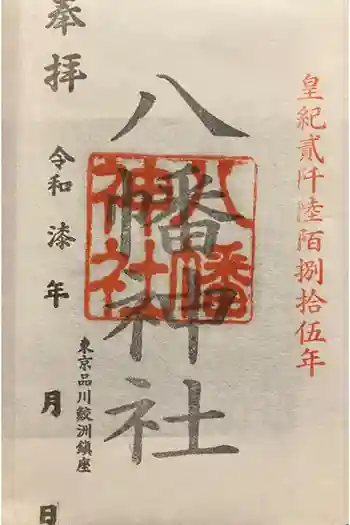 皇紀貳阡陸陌捌拾伍年
八幡神社
八幡
神社
東京品川鮫洲鎮座
奉拝
令和漆年
月
日